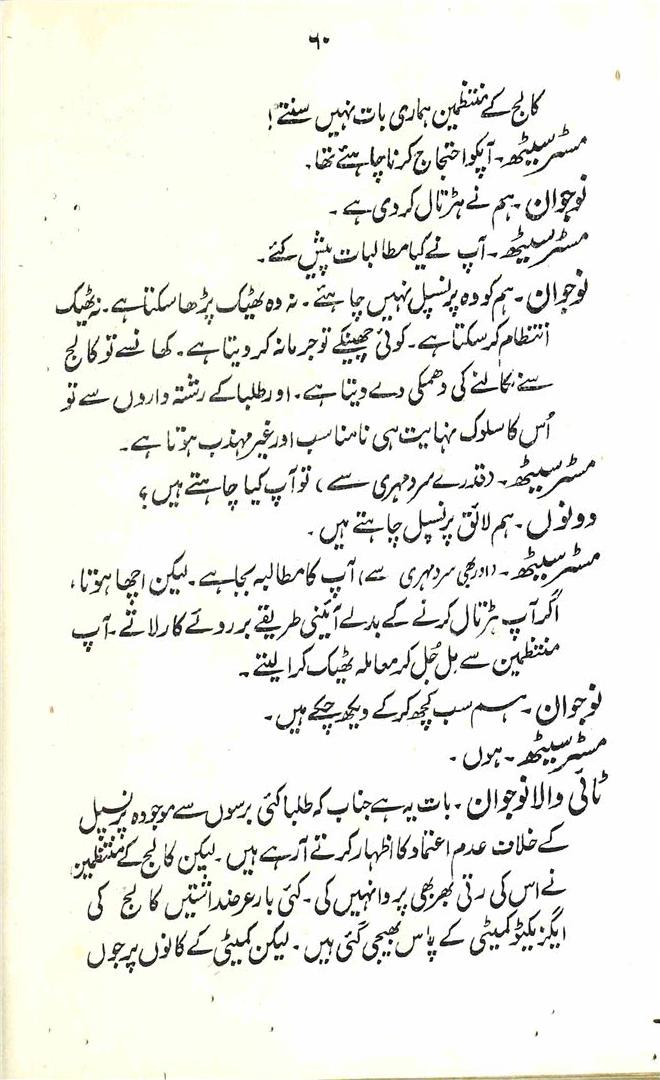 ۶۰
کالج کے منتظمین ہماری بات نہیں سنتے!
مسٹر سیٹھ۔ آپکو احتجاج کرنا چاہئے تھا۔
نوجوان۔ ہم نے ہڑتال کر دی ہے۔
مسٹر سیٹھ۔ آپ نے کیا مطالبات پیش کئے۔
نوجوان۔ ہم کو وہ پرنسپل نہیں چاہئے۔ نہ وہ ٹھیک پڑھا سکتا ہے۔ نہ ٹھیک
انتظام کر سکتا ہے۔ کوئی چھینکے تو جرمانہ کر دیتا ہے۔ کھانسے تو کالج
سے نکالنے کی دھمکی دے دیتا ہے۔ اور طلبا کے رشتہ داروں سے تو
اُس کا سلوک نہایت ہی نامناسب اور غیر مہذب ہوتا ہے۔
مسٹر سیٹھ۔ (قدرے سرد مہری سے) تو آپ کیا چاہتے ہیں؟
دونوں۔ ہم لائق پرنسپل چاہتے ہیں۔
مسٹر سیٹھ۔ (اور بھی سرد مہری سے) آپ کا مطالبہ بجا ہے۔ لیکن اچھا ہوتا،
اگر آپ ہڑتال کرنے کے بدلے آئینی طریقے بروئے کار لاتے۔ آپ
منتظمین سے مل جُل کر معاملہ ٹھیک کرا لیتے۔
نوجوان۔ ہم سب کچھ کر کے دیکھ چکے ہیں۔
مسٹر سیٹھ۔ ہوں۔
ٹائی والا نوجوان۔ بات یہ ہے جناب کہ طلبا کئی برسوں سے موجودہ پرنسپل
کے خلاف عدم اعتماد کا اظہار کرتے آ رہے ہیں۔ لیکن کالج کے منتظمین
نے اس کی رتی بھر بھی پروا نہیں کی۔ کئی بار عرضداشتیں کالج کی
ایگزیکٹو کمیٹی کے پاس بھیجی گئی ہیں۔ لیکن کمیٹی کے کانوں پر جوں